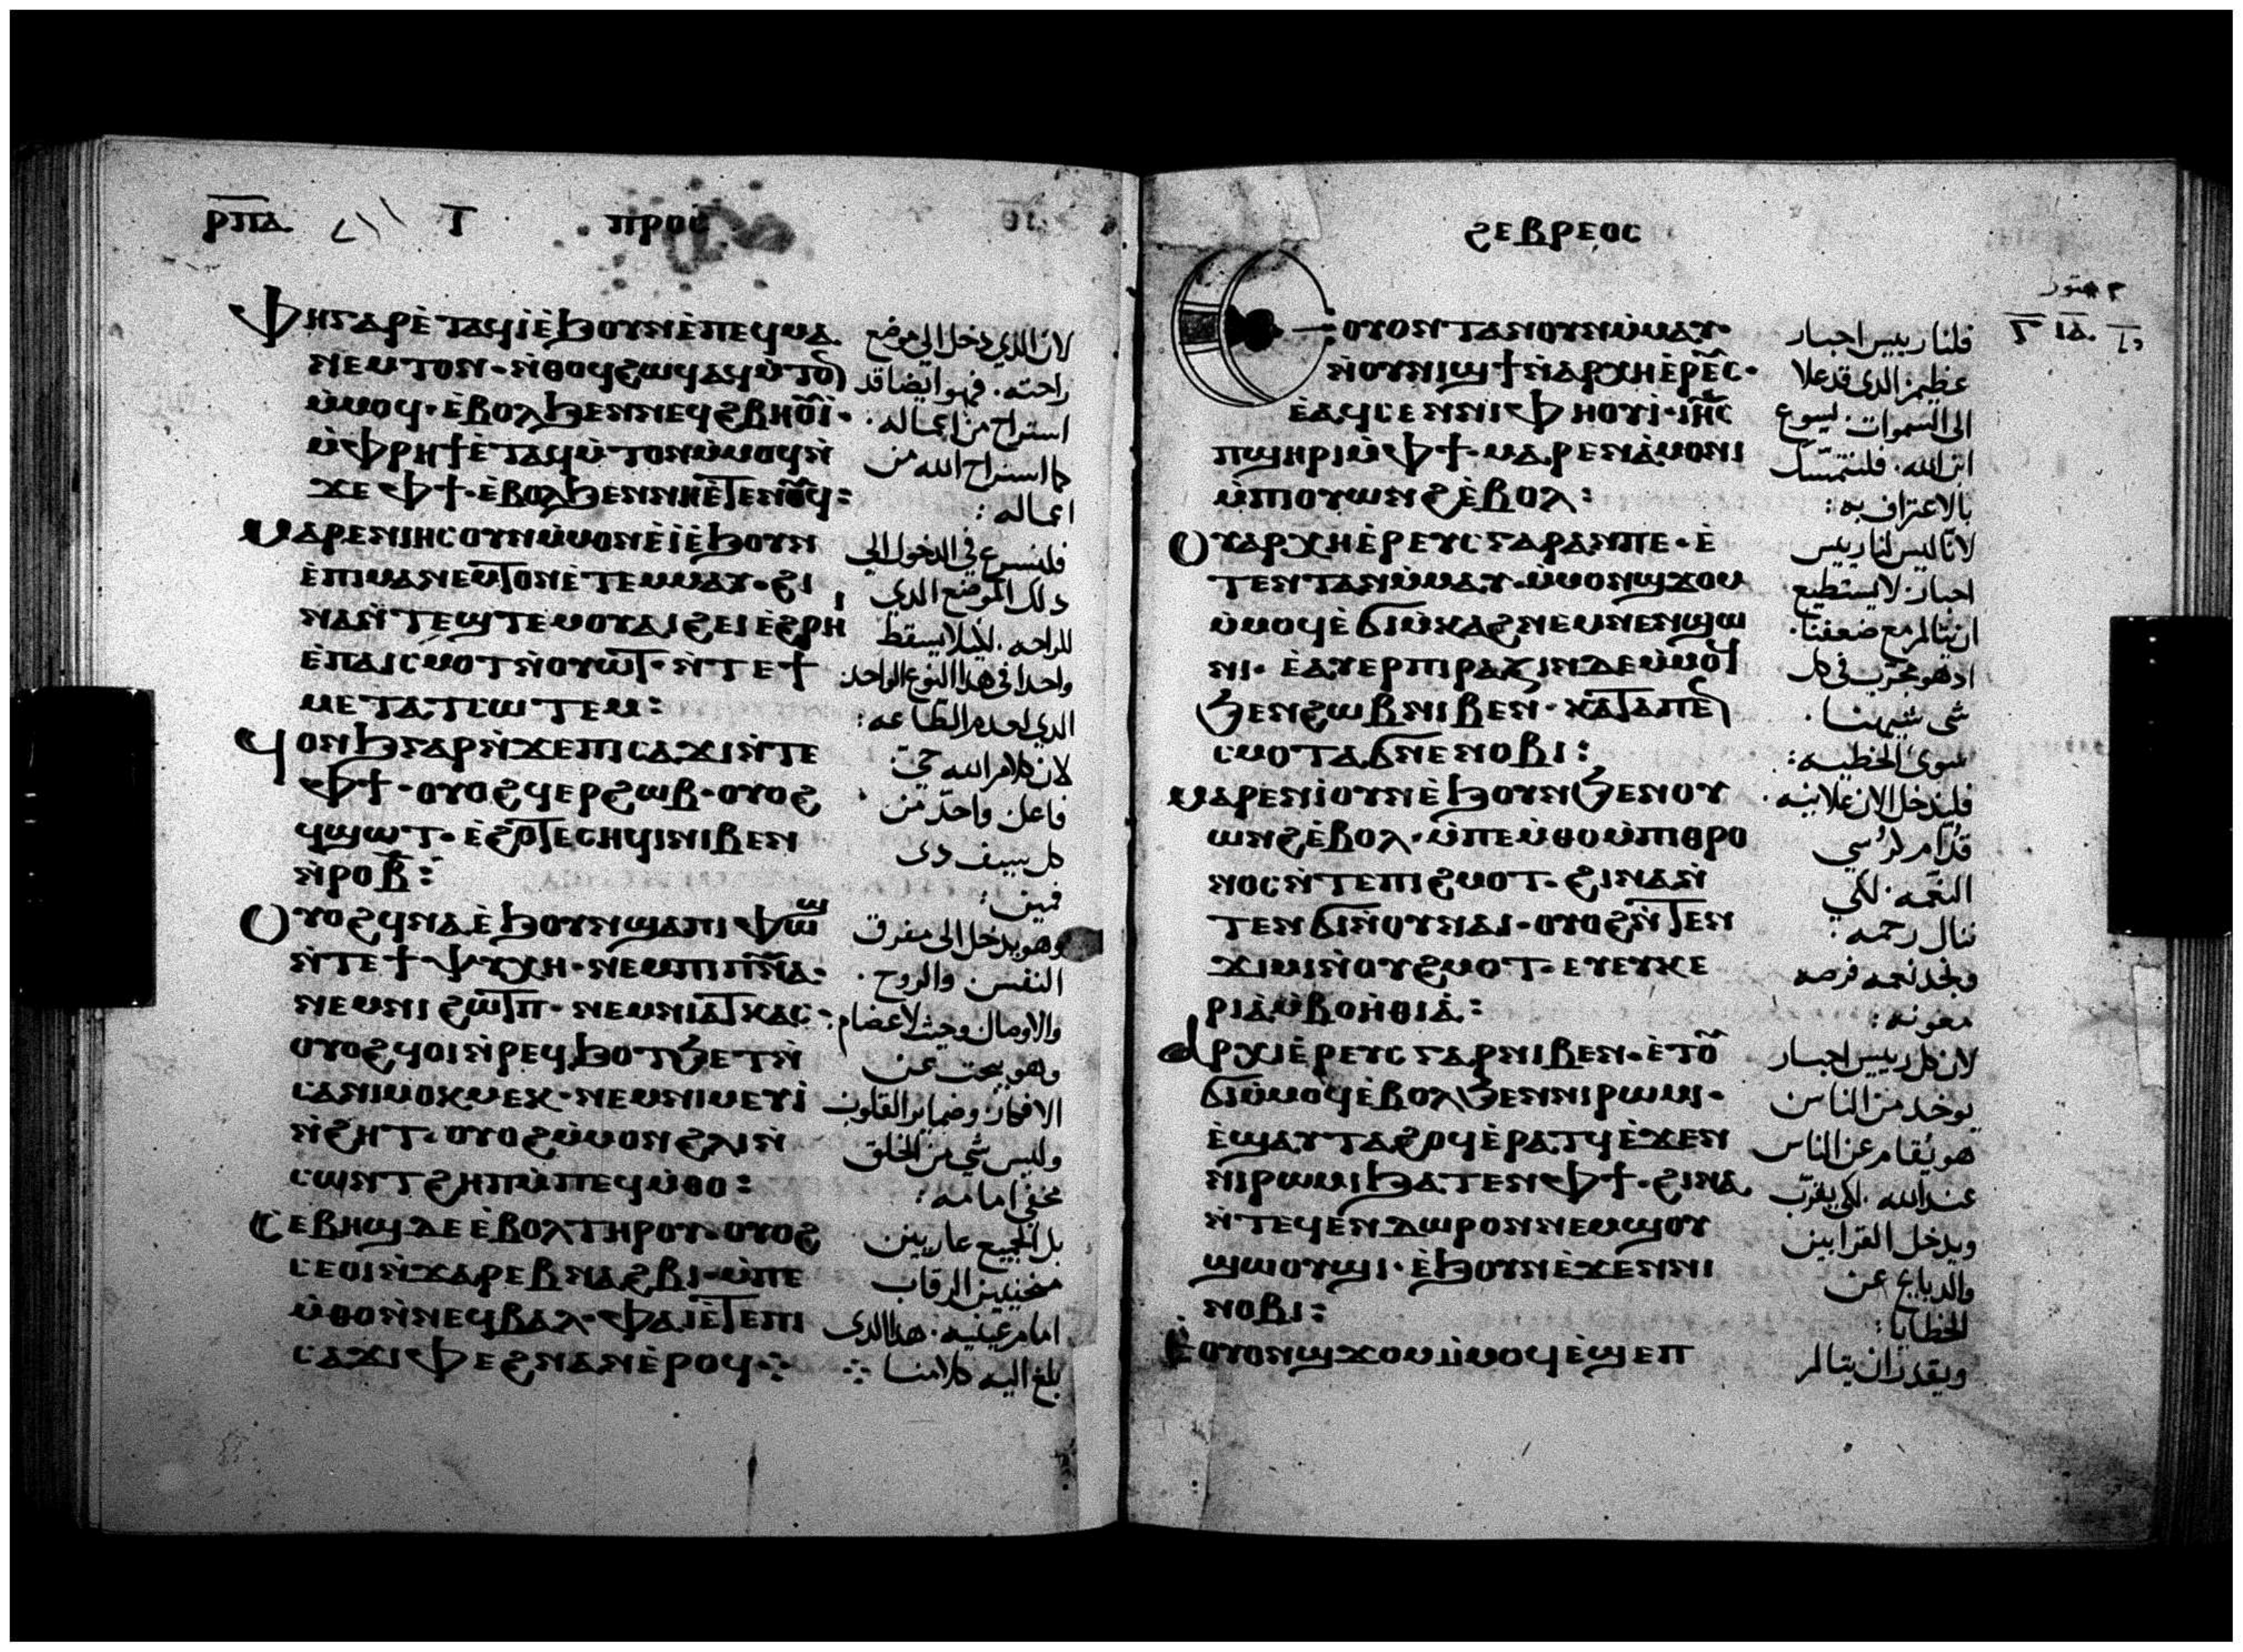 ⲣⲡⲁ ⲡⲣⲟⲥ
ⲫⲏⲅⲁⲣⲉ̀ⲧⲁϥⲓ̀ⲉ̀ϧⲟⲩⲛⲉ̀ⲡⲉϥⲙⲁ
ⲛⲉⲙⲧⲟⲛ · ⲛ̀ⲑⲟϥϩⲱϥⲁϥⲙ̀ⲧⲟ̅
ⲙ̀ⲙⲟϥ · ⲉ̀ⲃⲟⲗϧⲉⲛⲛⲉϥϩⲃⲏⲟⲩⲓ̀ ·
ⲙ̀ⲫⲣⲏϯⲉ̀ⲧⲁϥⲙ̀ⲧⲟⲛⲙ̀ⲙⲟϥⲛ̀
ϫⲉⲫϯ · ⲉ̀ⲃⲟⲗϧⲉⲛⲛⲏⲉ̀ⲧⲉⲛⲟⲩϥ :
ⲙⲁⲣⲉⲛⲓⲏⲥⲟⲩⲛⲙ̀ⲙⲟⲛⲉ̀ⲓ̀ⲉ̀ϧⲟⲩⲛ
ⲉ̀ⲡⲓⲙⲁⲛⲉⲙⲧⲟⲛⲉ̀ⲧⲉⲙⲙⲁⲩ · ϩⲓ
ⲛⲁⲛ̀ⲧⲉϣⲧⲉⲙⲟⲩⲁⲓϩⲉⲓⲉ̀ϩⲣⲏⲓ
ⲉ̀ⲡⲁⲓⲥⲙⲟⲧⲛ̀ⲟⲩⲱⲧ · ⲛ̀ⲧⲉϯ
ⲙⲉⲧⲁⲧⲥⲱⲧⲉⲙ :
ϥⲟⲛϧⲅⲁⲣⲛ̀ϫⲉⲡⲓⲥⲁϫⲓⲛ̀ⲧⲉ
ⲫϯ · ⲟⲩⲟϩϥⲉⲣϩⲱⲃ · ⲟⲩⲟϩ
ϥϣⲱⲧ · ⲉ̀ϩⲟⲧⲉⲥⲏϥⲓⲛⲓⲃⲉⲛ
ⲛ̀ⲣⲟⲃ̅ :
ⲟⲩⲟϩϥⲛⲁⲉ̀ϧⲟⲩⲛϣⲁⲡⲓⲫⲱϣ
ⲛ̀ⲧⲉϯⲯⲩⲭⲏ · ⲛⲉⲙⲡⲓⲡ̅ⲛ̅ⲁ̅ ·
ⲛⲉⲙⲛⲓϩⲱⲧⲡ · ⲛⲉⲙⲛⲓⲁⲧⲕⲁⲥ ·
ⲟⲩⲟϩϥⲟⲓⲛ̀ⲣⲉϥϧⲟⲧϧⲉⲧⲛ̀
ⲥⲁⲛⲓⲙⲟⲕⲙⲉⲕ · ⲛⲉⲙⲛⲓⲙⲉⲩⲓ̀
ⲛ̀ϩⲏⲧ · ⲟⲩⲟϩⲙ̀ⲙⲟⲛϩⲗⲓⲛ̀
ⲥⲱⲛⲧϩⲏⲡⲙ̀ⲡⲉϥⲙ̀ⲑⲟ :
ⲥⲉⲃⲏϣⲇⲉⲉ̀ⲃⲟⲗⲧⲏⲣⲟⲩ · ⲟⲩⲟϩ
ⲥⲉⲟⲓⲛ̀ϫⲁⲣⲉⲃⲛⲁϩⲃⲓ · ⲙ̀ⲡⲉ
ⲙ̀ⲑⲟⲛ̀ⲛⲉϥⲃⲁⲗ · ⲫⲁⲓⲉ̀ⲧⲉⲡⲓ
ⲥⲁϫⲓⲫⲉϩⲛⲁⲛⲉ̀ⲣⲟϥ ·:·
لان الذي دخل الى موضع
راحته . فهو ايضا قد
استراح من اعماله .
كما استراح الله من
اعماله :
فلنسرع في الدخول الى
ذلك الموضع الذي
للراحه . ليلا يسقط
واحدا في هذا النوع الواحد
لان كلام الله حيّ
فاعل واحدّ من
كل سيف دى
فمين :
وهو يدخل الى مفرق
النفس والروح .
وهو يبحث عن
الافكار وضماير القلوب
وليس شي من الخلق
مخفي امامه :
بل الجميع عاريين
منحنيين الرقاب
امام عينيه . هذا الذى
بلغ اليه كلامنا ·:·
ϩⲉⲃⲣⲉⲟⲥ
ⲉⲟⲩⲟⲛⲧⲁⲛⲟⲩⲛⲙ̀ⲙⲁⲩ ·
ⲛ̀ⲟⲩⲛⲓϣϯⲛ̀ⲁⲣⲭⲏⲉ̀ⲣⲉⲥ ·
ⲉ̀ⲁϥⲥⲉⲛⲛⲓⲫⲏⲟⲩⲓ̀ · ⲓⲏ̅ⲥ
ⲡϣⲏⲣⲓⲙ̀ⲫϯ · ⲙⲁⲣⲉⲛⲁ̀ⲙⲟⲛⲓ
ⲙ̀ⲡⲓⲟⲩⲱⲛϩⲉ̀ⲃⲟⲗ :
ⲟⲩⲁⲣⲭⲏⲉ̀ⲣⲉⲩⲥⲅⲁⲣⲁⲛⲡⲉ · ⲉ̀
ⲧⲉⲛⲧⲁⲛⲙ̀ⲙⲁⲩ · ⲙ̀ⲙⲟⲛϣϫⲟⲙ
ⲙ̀ⲙⲟϥⲉ̀ϭⲓⲙ̀ⲕⲁϩⲛⲉⲙⲛⲉⲛϣⲱ
ⲛⲓ · ⲉ̀ⲁⲩⲉⲣⲡⲓⲣⲁⲍⲓⲛⲇⲉⲙ̀ⲙⲟϥ
ϧⲉⲛϩⲱⲃⲛⲓⲃⲉⲛ · ⲕⲁⲧⲁⲡⲉⲛ
ⲥⲙⲟⲧⲁϭⲛⲉⲛⲟⲃⲓ :
ⲙⲁⲣⲉⲛⲓ̀ⲟⲩⲛⲉ̀ϧⲟⲩⲛϧⲉⲛⲟⲩ
ⲱⲛϩⲉ̀ⲃⲟⲗ · ⲙ̀ⲡⲉⲙ̀ⲑⲟⲙ̀ⲡⲓⲑⲣⲟ
ⲛⲟⲥⲛ̀ⲧⲉⲡⲓϩⲙⲟⲧ · ϩⲓⲛⲁⲛ̀
ⲧⲉⲛϭⲓⲛ̀ⲟⲩⲛⲁⲓ · ⲟⲩⲟϩⲛ̀ⲧⲉⲛ
ϫⲓⲙⲓⲛ̀ⲟⲩϩⲙⲟⲧ · ⲉⲩⲉⲩⲕⲉ
ⲣⲓⲁ̀ⲙ̀ⲃⲟⲏ̀ⲑⲓⲁ̀ :
ⲁⲣⲭⲓⲉ̀ⲣⲉⲩⲥⲅⲁⲣⲛⲓⲃⲉⲛ · ⲉ̀ⲧⲟⲩ
ϭⲓⲙ̀ⲙⲟϥⲉ̀ⲃⲟⲗϧⲉⲛⲛⲓⲣⲱⲙⲓ ·
ⲉ̀ϣⲁⲩⲧⲁϩⲟϥⲉ̀ⲣⲁⲧϥⲉ̀ϫⲉⲛ
ⲛⲓⲣⲱⲙⲓϧⲁⲧⲉⲛⲫϯ · ϩⲓⲛⲁ
ⲛ̀ⲧⲉϥⲉⲛⲇⲱⲣⲟⲛⲛⲉⲙϣⲟⲩ
ϣⲱⲟⲩϣⲓ · ⲉ̀ϧⲟⲩⲛⲉ̀ϫⲉⲛⲛⲓ
ⲛⲟⲃⲓ :
ⲉ̀ⲟⲩⲟⲛϣϫⲟⲙⲙ̀ⲙⲟϥⲉ̀ϣⲉⲡ
فلنا رييس احبار
عظيم الذى قد علا
الى السموات . يسوع
ابن الله . فلنتمسّك
بالاعتراف به :
لانّا ليس لنا رييس
احبار لا يستطيع
ان يتالم مع ضعفنا .
اذ هو مجرّب في كل
شى شبهنا .
سوى الخطيه :
فلندخل الان علانيه .
قدّام كرسي
النعمه . لكي
ننال رحمه .
ونجد نعمه فرصه
معونه :
لان كل رييس احبار
يوخد من الناس
هو يقام عن الناس
عند الله . لكي يقرّب
ويدخل القرابين
والدبايح عن
الخطايا :
ويقدر ان يتالم